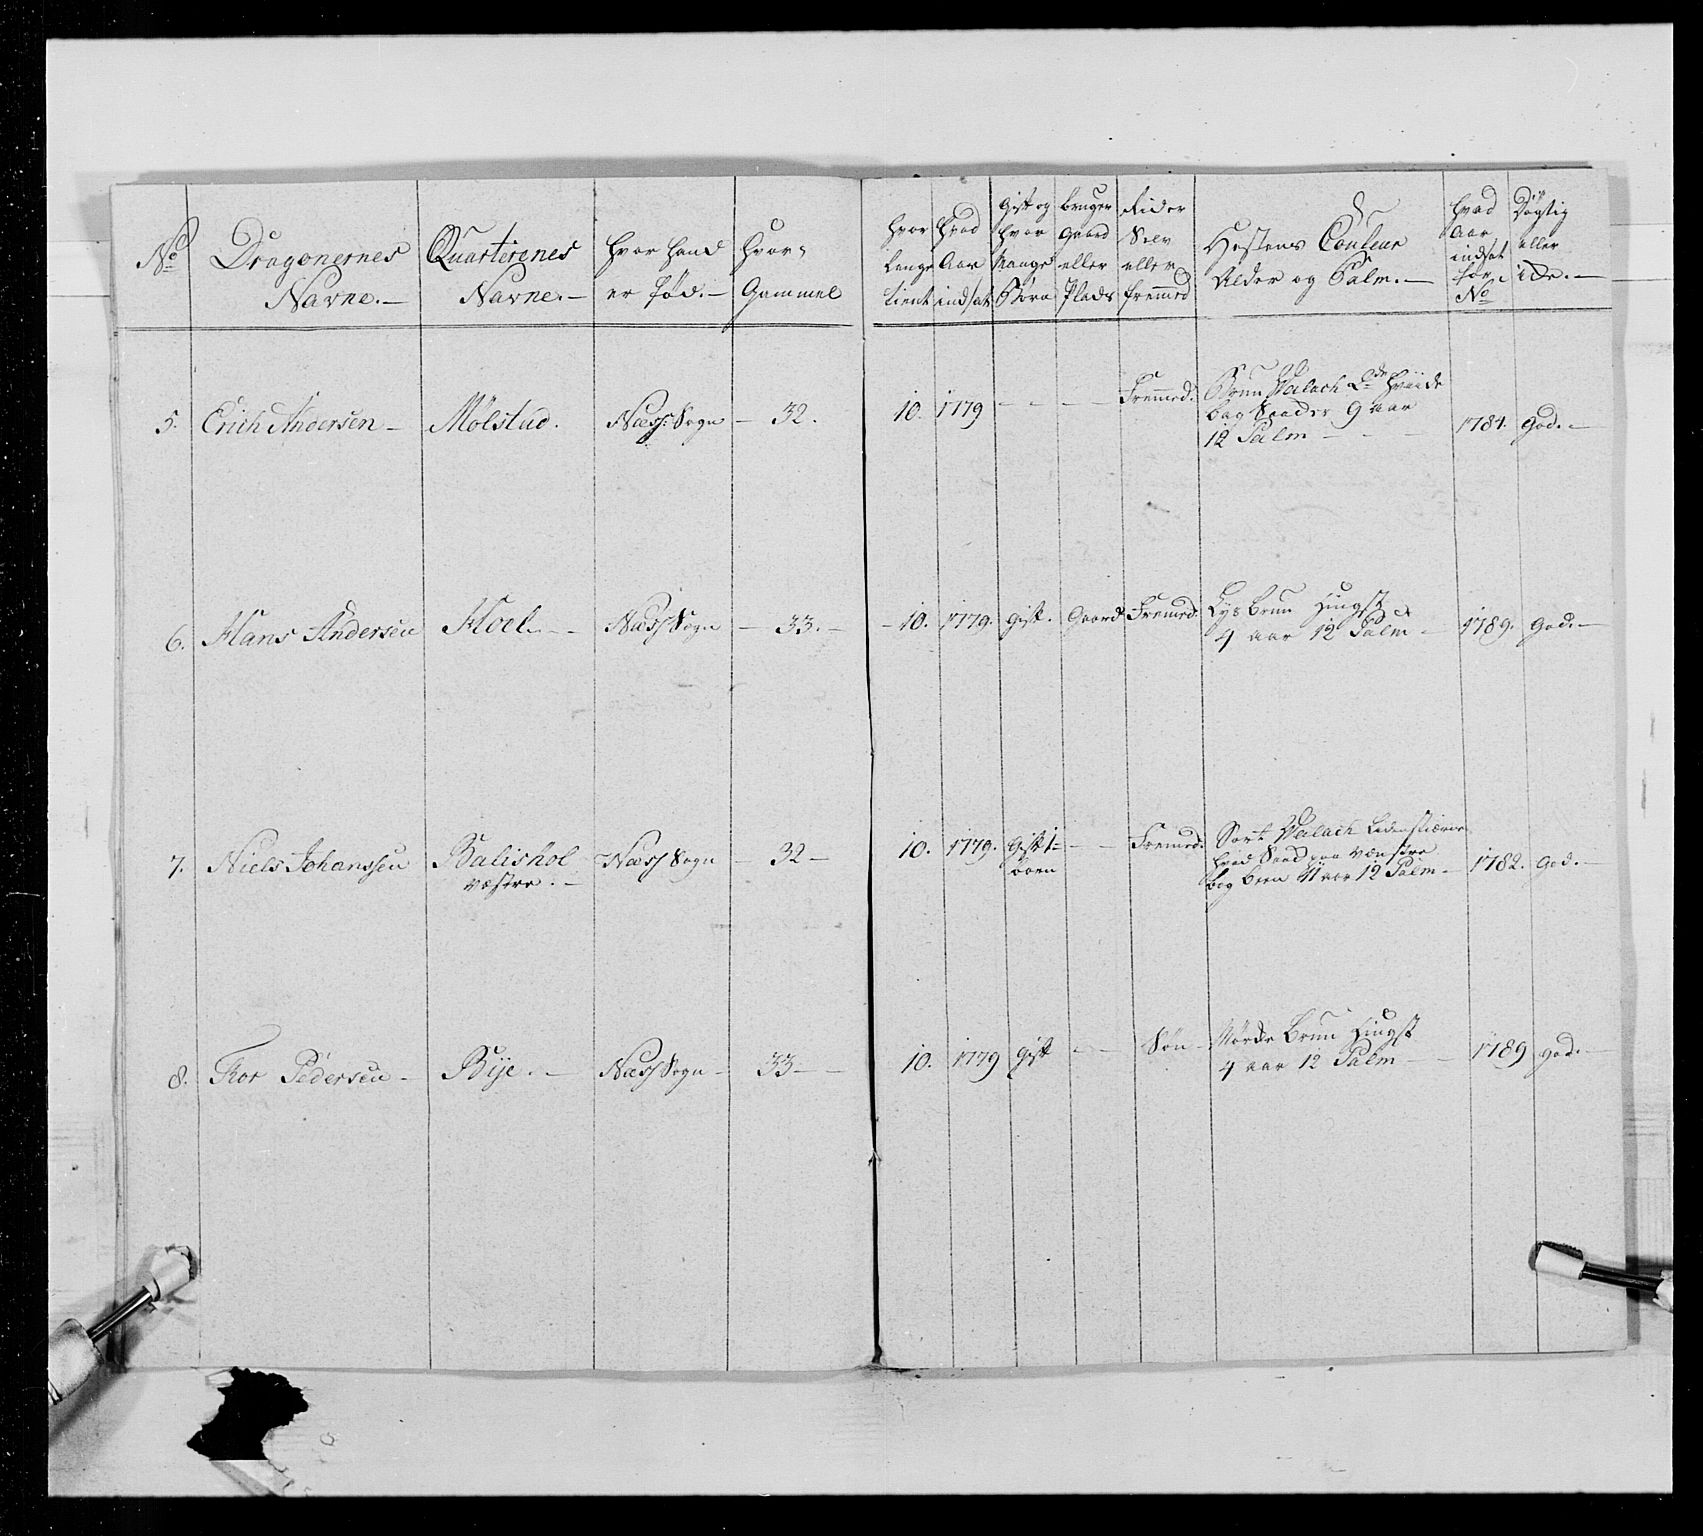 No
Dragonernes
Navne. —
Quartirenes
Navne. —
hvor hand
er fød. —
hvor
Gammel
hvor
lenge
tient
hvad
Aar
indsat
Gift og
hvor
mange
Børn
bruger
Gaard
eller
Plads
Rider
Selv
eller
fremmed
Hestens Couleur
Alder og Palm. —
hvad
Aar
indsat
for
No
Døgtig
eller
ide. —
5. Erich Andersen — Mölstud. Næss Sogn — 32. 10. 1779 — — — — Fremmed. Brun Valach hviide
bag Fooder 9 aar
12 Palm — — — 1784. God. —
6. Hans Andersen Hoel. — — Næss Sogn — 33. — — 10. 1779. Gift. Gaard Fremmed. Lys Brun Hingst
4 aar 12 Palm — 1789. God. —
7. Niels Johanssen Balishol
væstre. — Næss Sogn — 32 — 10. 1779. Gift 1
barn — — Fremmed. Sort Valach
hvid paa venstre
bag been 11 aar 12 Palm — 1782. God. —
8. Thor Pedersen — Bye. — Næss Sogn — 33 — — 10. 1779 Gift — — Søn — Mörke Brun Hingst
4 aar 12 Palm — — 1789 god. —